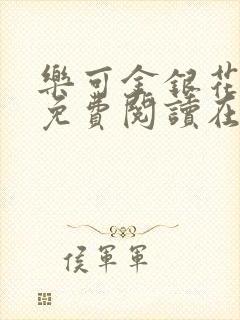 樂可金銀花
免費閱讀在
侯軍軍